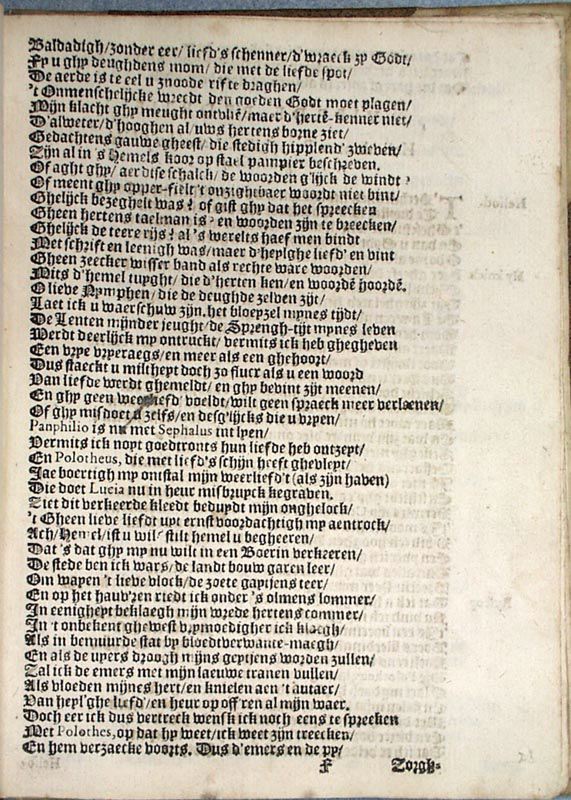 Baldadigh/zonder eer/ liefd's schenner/d'wraeck zy Godt/
Fy u ghy deughdens mom/ die met de liefde spot/
De aerde is te eel u znoode rif te draghen/
't Onmenschelijcke wreedt den goeden Godt moet plagen/
Mijn klacht ghy meught ontvliē/maer d'hertē-kenner niet/
D'alweter/d'hooghen al/uws hertens borne ziet/
Gedachtens gauwe gheest/die stedigh hipplend' zweven/
Zijn al in 's Hemels koor op stael pampier beschreven.
Of aght ghy/ aerdisc schalck/ de woorden g'lijck de windt?
Of meent ghy opper-fielt 't onzightbaer woordt niet bint/
Ghelijck bezegheit was? of gift ghy dat het spreecken
Gheen hertens taelman is? en woorden zijn te breecken/
Ghelijck de teere rijs? al 's werelts haef men bindt
Met schrift en leenigh was/maer d'heylghe liefd' en vint
Gheen zeecker wisser band als rechte ware woorden/
Mits d'hemel tuyght/ die d'herten ken/en woordē hoordē.
O lieve Nymphen/ die de deughde zelven zijt/
Laet ick u waerschuw zijn, het bloeyzel mynes tijdt/
De Lenten mijnder jeught/ de Sprengh-tijt mynes leven
Werdt deerlijck my ontruckt/ vermits ick heb ghegheven
Een vrye vryeraegs/en meer als een ghehoort/
Dus staeckt u miltheyt doch zo flucx als u een woord
Van liefde werdt ghemeldt/ en ghy bevint zijt meenen/
En ghy geen weerliefd' voeldt/wilt geen spraeck meer verleenen/
Of ghy misdoet u zelfs/en desg'lijcks die u vryen/
Panphilio is nu met Sephalus int lyen/
Vermits ick noyt goedtronts hun liefde heb ontzeyt/
En Polotheus, die met liefd's schijn heeft ghevleyt/
Jae boertigh my ontstal mijn weerliefd't (als zijn haven)
Die doet Lucia nu in heur misbruyck begraven.
Ziet dit verkeerde kleedt beduydt mijn onghelock/
't Gheen lieve liefdt uyt ernst voordachtigh my aentrock/
Ach/Hemel/ist u wil? stilt hemel u begheeren/
Dat 's dat ghy my nu wilt in een Boerin verkeeren/
De stede ben ick wars/de landt bouw garen leer/
Om wayen 't lieve vlock/de zoete gaytjens teer/
En op het hauw'ren riedt ick onder 's olmens lommer/
In eenigheyt beklaegh mijn wrede hertens commer/
In 't onbekent ghewest vrymoedigher ick klaegh/
Als in bemuurde stat by bloedtverwante-maegh/
En als de uyers droogh mijns geytjens worden zullen/
Zal ick de emers met mijn laeuwe tranen vullen/
Als vloeden mijnes hert/en knielen aen 't autaer/
Van heyl'ghe liefd'/en heur op off'ren al mijn waer.
Doch eer ick dus vertreck wensk ick noch eens te spreeken
Met Polothes, op dat hy weet/ick weet zijn treecken/
En hem verzaecke voorts. Dus d'emers en de py/
F Zorgh-